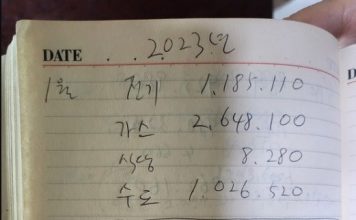 DATE . . 2023년
1월 전기 1.185.110
가스 2.648.100
식당 8.280
수도 1.026.520